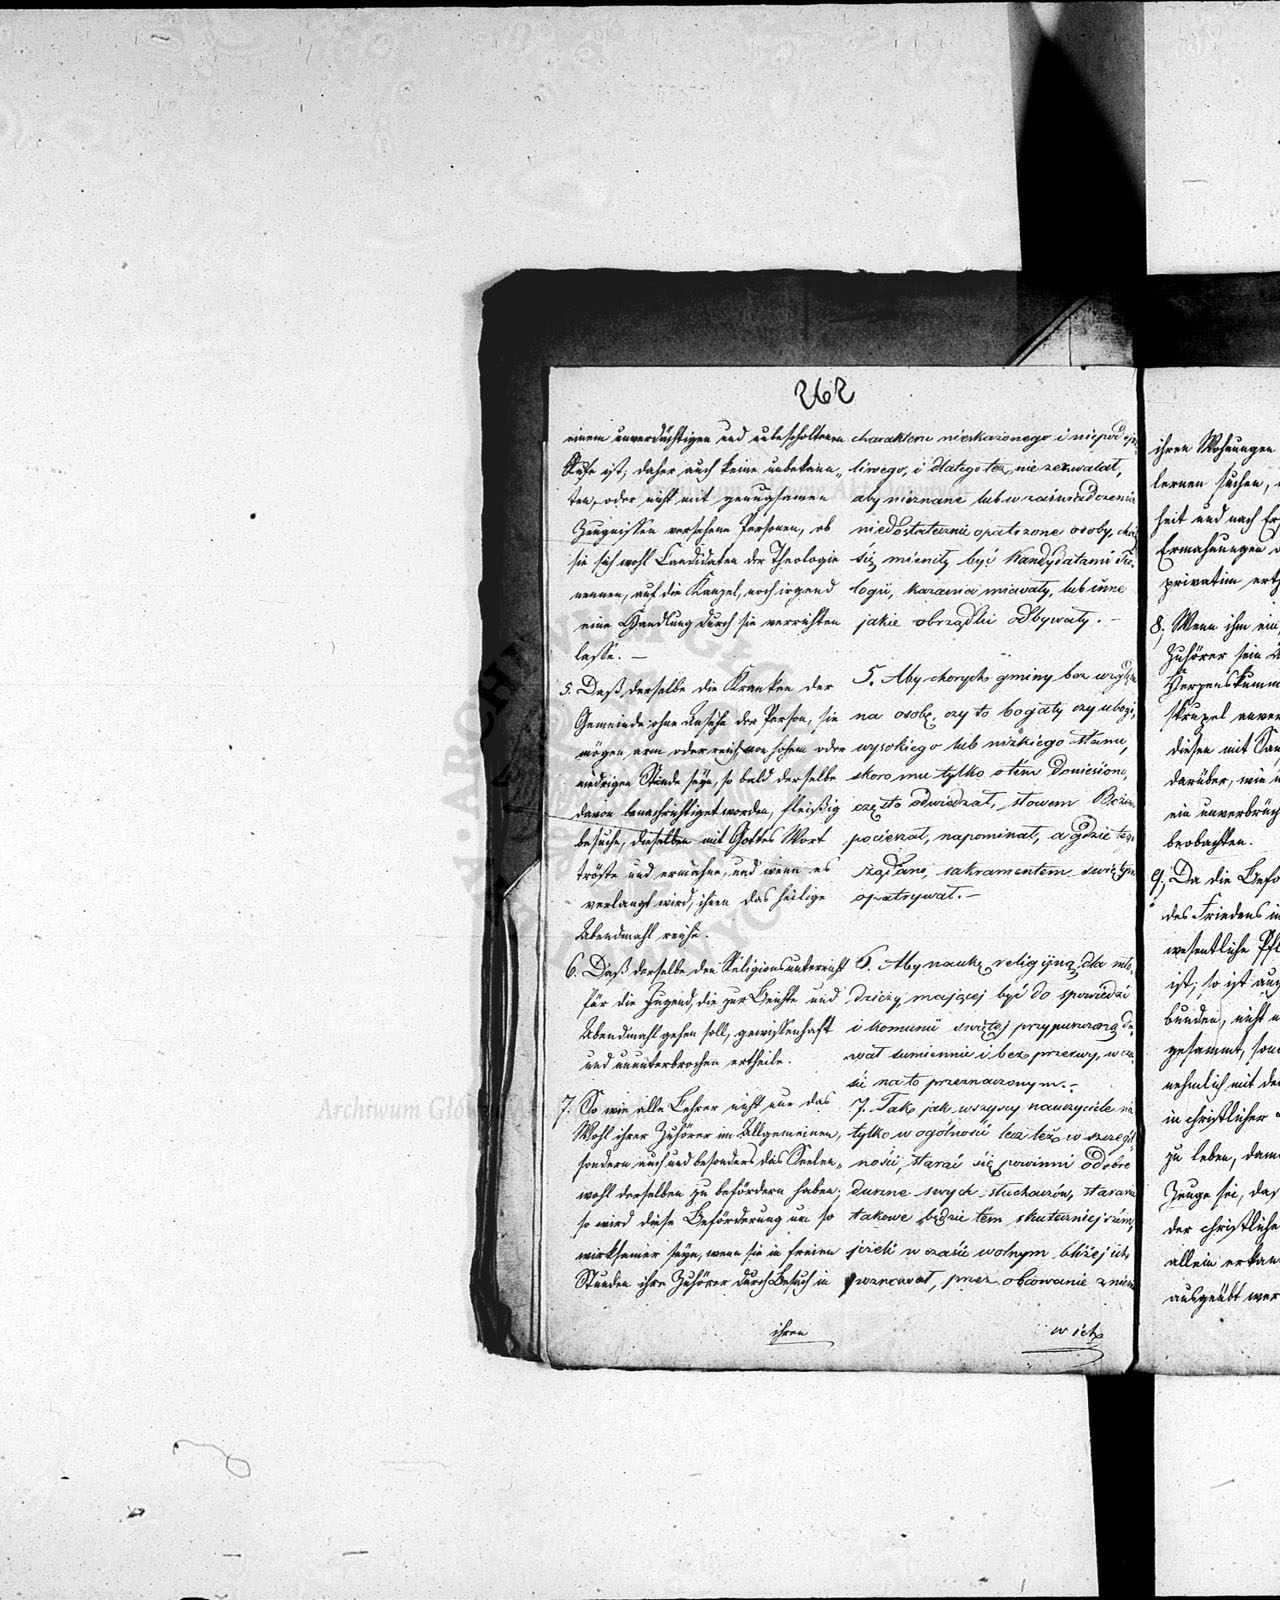 262
einem unverdächtigen und unbescholtenen
Rufe ist; daher auch keine unbekann„
ten, oder nicht mit genugsamen
Zeugnissen versehene Personen, ob
sie sich wohl Candidaten der Theologie
nennen, auf die Kanzel, noch irgend
eine Handlung durch sie verrichten
lasse. —
5. Daß derselbe die Kranken der
Gemeinde ohne Ansehe der Person, sie
mögen arm oder reich, von hohem oder
niedrigen Stande seyn, so bald derselbe
davon benachrichtiget worden, fleißig
besuche, dieselben mit Gottes Wort
tröste und ermahne, und wenn es
verlangt wird, ihnen das heilige
Abendmahl reiche.
6. Daß derselbe den Religionsunterricht
für die Jugend, die zur Beichte und
Abendmahl gehen soll, gewissenhaft
und ununterbrochen ertheile.
7. So wie alle Lehrer nicht nur das
Wohl ihrer Zuhörer im Allgemeinen,
sondern auch und besonders das Seelen„
wohl derselben zu befördern haben;
so wird diese Beförderung um so
wirksamer seyn, wenn sie in freien
Stunden ihre Zuhörer durch Besuch in
ihren
charakteru nieskażonego i niepodej
liwego, i dlatego też nie zezwalał,
aby nieznane lub w zaświadczenia
niedostatecznie opatrzone osoby, choć
się mieniły być Kandydatami Teo„
logii, kazania miewały, lub inne
jakie obrządki odbywały. —
5. Aby chorych gminy bez względu
na osobę, czy to bogaty czy ubogi,
wysokiego lub nizkiego stanu,
skoro mu tylko o tém doniesiono,
często odwiedzał, słowem Bożem
pocieszał, napominał, a gdzie tego
żądano, sakramentem świętym
opatrywał. —
6. Aby naukę religijną dla mło„
dzieży mającej być do spowiedzi
i komunii świętej przypuszczoną da„
wał sumiennie i bez przerwy, w cza„
sie na to przeznaczonym. —
7. Tak jak wszyscy nauczyciele nie
tylko w ogólności lecz też w szczegól
ności, starać się powinni o dobro
duszne swych słuchaczów, staranie
takowe będzie tém skuteczniejszém,
jeżeli w czasie wolnym bliżej ich
poznawał, przez obcowanie z niemi
w ich
ihren Wohnungen
lernen suchen,
heit und nach
Ermahnungen
privatim
8. Wenn ihm ein
Zuhörer sein
Herzenskumm
skrupel
diesen mit
darüber, wie
ein unverbrüch
beobachten.
9. Da die
des Friedens
wesentliche
ist; so ist
bunden, nicht
gesammt,
nehmlich mit
in christlicher
zu leben,
Zeuge sei, daß
der christliche
allein
ausgeübt
Archiwum Główne Akt